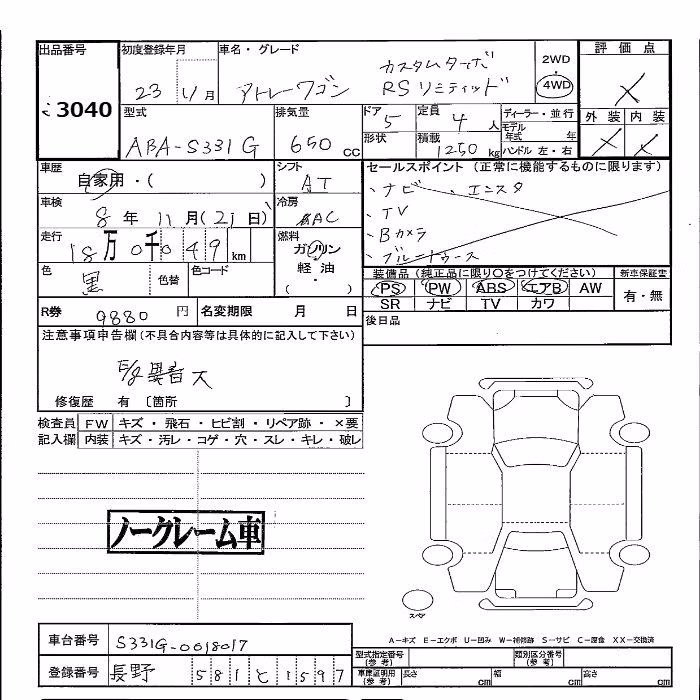 出品番号 初度登録年月 車名・グレード 評価点
3040 23 11月 アトレーワゴン カスタムターボ RSリミティッド 2WD・4WD
型式 排気量 ドア 定員 ディーラー・並行 外装 内装
ABA-S331G 650cc 5 4人 モデル年式 年
形状 積載 1250kg ハンドル 左・右
車歴 シフト セールスポイント(正常に機能するものに限ります)
自家用・( ) AT ・ナビ ・エンスタ
車検 冷房 ・TV
8年11月(21日) AC ・Bカメラ
走行 燃料 ・ブルートゥース
18万0千049km ガソリン 軽油・( )
色 黒 色替 色コード
装備品(純正品に限り〇をつけてください) 新車保証書
PS PW ABS エアB AW 有・無
SR ナビ TV カワ
R券 9880円 名変期限 月 日 後日品
注意事項申告欄(不具合内容等は具体的に記入して下さい)
E/g異音大
修復歴 有 〔箇所 〕
検査員 FW キズ・飛石・ヒビ割・リペア跡・×要
記入欄 内装 キズ・汚レ・コゲ・穴・スレ・キレ・破レ
ノークレーム車
スペア
A-キズ E-エクボ U-凹み W-補修跡 S-サビ C-腐食 XX-交換済
車台番号 S331G-0018017
型式指定番号(参考) 類別区分番号(参考)
登録番号 長野 581 と 1597
車庫証明用(参考) 長さ cm 幅 cm 高さ cm